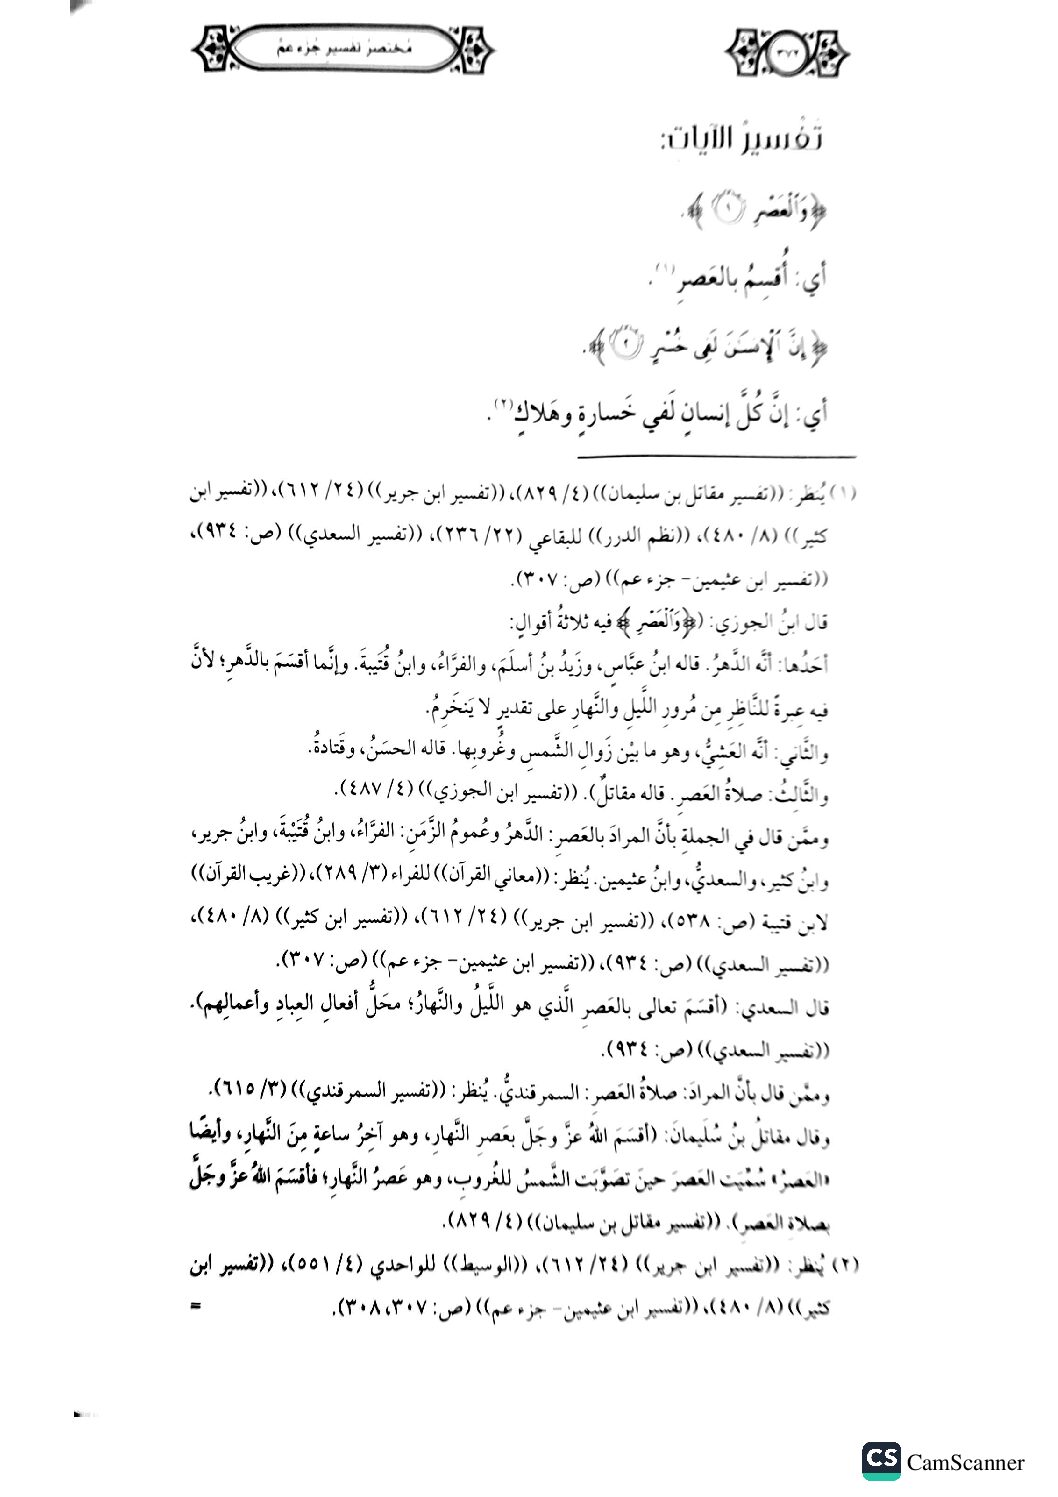 مُختصرُ تفسيرِ جُزء عمَّ
٣٧٢
تَفْسيرُ الآيات:
﴿وَٱلْعَصْرِ ١﴾.
أي: أُقسِمُ بالعَصرِ(١).
﴿إِنَّ ٱلْإِنسَٰنَ لَفِى خُسْرٍ ٢﴾.
أي: إنَّ كُلَّ إنسانٍ لَفي خَسارةٍ وهَلاكٍ(٢).
(١) يُنظَر: ((تفسير مقاتل بن سليمان)) (٤/ ٨٢٩)، ((تفسير ابن جرير)) (٢٤/ ٦١٢)، ((تفسير ابن
كثير)) (٨/ ٤٨٠)، ((نظم الدرر)) للبقاعي (٢٢/ ٢٣٦)، ((تفسير السعدي)) (ص: ٩٣٤)،
((تفسير ابن عثيمين- جزء عم)) (ص: ٣٠٧).
قال ابنُ الجوزي: (﴿وَٱلْعَصْرِ﴾ فيه ثلاثةُ أقوالٍ:
أحَدُها: أنَّه الدَّهرُ. قاله ابنُ عبَّاسٍ، وزَيدُ بنُ أسلَمَ، والفرَّاءُ، وابنُ قُتَيبةَ. وإنَّما أقسَمَ بالدَّهرِ؛ لأنَّ
فيه عِبرةً للنَّاظِرِ مِن مُرورِ اللَّيلِ والنَّهارِ على تقديرٍ لا يَنخَرِمُ.
والثَّاني: أنَّه العَشِيُّ، وهو ما بيْن زَوالِ الشَّمسِ وغُروبِها. قاله الحسَنُ، وقَتادةُ.
والثَّالِثُ: صلاةُ العَصرِ. قاله مقاتلٌ). ((تفسير ابن الجوزي)) (٤/ ٤٨٧).
وممَّن قال في الجملةِ بأنَّ المرادَ بالعَصرِ: الدَّهرُ وعُمومُ الزَّمَنِ: الفرَّاءُ، وابنُ قُتَيْبةَ، وابنُ جريرٍ،
وابنُ كثيرٍ، والسعديُّ، وابنُ عثيمين. يُنظر: ((معاني القرآن)) للفراء (٣/ ٢٨٩)، ((غريب القرآن))
لابن قتيبة (ص: ٥٣٨)، ((تفسير ابن جرير)) (٢٤/ ٦١٢)، ((تفسير ابن كثير)) (٨/ ٤٨٠)،
((تفسير السعدي)) (ص: ٩٣٤)، ((تفسير ابن عثيمين- جزء عم)) (ص: ٣٠٧).
قال السعدي: (أقسَمَ تعالى بالعَصرِ الَّذي هو اللَّيلُ والنَّهارُ؛ محَلُّ أفعالِ العِبادِ وأعمالِهم).
((تفسير السعدي)) (ص: ٩٣٤).
وممَّن قال بأنَّ المرادَ: صلاةُ العَصرِ: السمرقنديُّ. يُنظر: ((تفسير السمرقندي)) (٣/ ٦١٥).
وقال مقاتلُ بنُ سُليمانَ: (أقسَمَ اللهُ عزَّ وجَلَّ بعَصرِ النَّهارِ، وهو آخِرُ ساعةٍ مِنَ النَّهارِ، وأيضًا
«العَصرُ» سُمِّيَت العَصرَ حينَ تصَوَّبَت الشَّمسُ للغُروبِ، وهو عَصرُ النَّهارِ؛ فأقسَمَ اللهُ عزَّ وجَلَّ
بصلاةِ العَصرِ). ((تفسير مقاتل بن سليمان)) (٤/ ٨٢٩).
(٢) يُنظر: ((تفسير ابن جرير)) (٢٤/ ٦١٢)، ((الوسيط)) للواحدي (٤/ ٥٥١)، ((تفسير ابن
كثير)) (٨/ ٤٨٠)، ((تفسير ابن عثيمين- جزء عم)) (ص: ٣٠٧، ٣٠٨). =
CS CamScanner